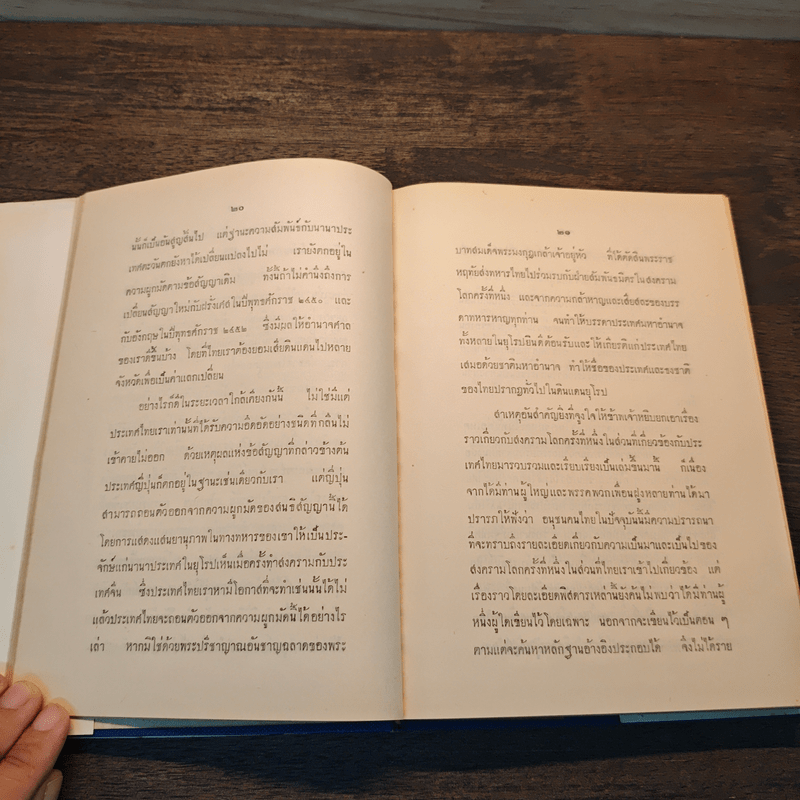 ๒๐
นั้นก็เป็นอันสูญสิ้นไป แต่ฐานะความสัมพันธ์กับนานาประ
เทศตะวันตกยังหาได้เปลี่ยนแปลงไปไม่ เรายังคกอยู่ใน
ความผูกมัดตามข้อสัญญาเดิม ทั้งนี้ถ้าไม่คำนึงถึงการ
เปลี่ยนสัญญาใหม่กับฝรั่งเศสในปีพุทธศักราช ๒๔๕๐ และ
กับอังกฤษในปีพุทธศักราช ๒๔๕๒ ซึ่งมีผลให้อำนาจศาล
ของเราดีขึ้นบ้าง โดยที่ไทยเราต้องยอมเสียดินแดนไปหลาย
จังหวัดเพื่อเป็นค่าแลกเปลี่ยน
อย่างไรก็ดีในระยะเวลาใกล้เคียงกันนี้ ไม่ใช่มีแต่
ประเทศไทยเราเท่านั้นที่ได้รับความอึดอัดอย่างชนิดที่กลืนไม่
เข้าคายไม่ออก ด้วยเหตุผลแห่งข้อสัญญาที่กล่าวข้างต้น
ประเทศญี่ปุ่นก็ตกอยู่ในฐานะเช่นเดียวกับเรา แต่ญี่ปุ่น
สามารถถอนตัวออกจากความผูกมัดของสนธิสัญญานี้ได้
โดยการแสดงแสนยานุภาพในทางทหารของเขาให้เป็นประ-
จักษ์แก่นานาประเทศในยุโรปเห็นเมื่อครั้งทำสงครามกับประ
เทศจีน ซึ่งประเทศไทยเราหามีโอกาสที่จะทำเช่นนั้นได้ไม่
แล้วประเทศไทยจะถอนตัวออกจากความผูกมัดนี้ได้อย่างไร
เล่า หากมิใช่ด้วยพระปรีชาญาณอันชาญฉลาดของพระ
๒๑
บาทสมเด็จพระมงกุฎเกล้าเจ้าอยู่หัว ที่ได้ตัดสินพระราช
หฤทัยส่งทหารไทยไปร่วมรบกับฝ่ายสัมพันธมิตรในสงคราม
โลกครั้งที่หนึ่ง และจากความกล้าหาญและเสียสละของบรร
ดาทหารหาญทุกท่าน จนทำให้บรรดาประเทศมหาอำนาจ
ทั้งหลายในยุโรปยินดีต้อนรับและให้เกียรติแก่ประเทศไทย
เสมอด้วยชาติมหาอำนาจ ทำให้ชื่อของประเทศและธงชาติ
ของไทยปรากฏทั่วไปในดินแดนยุโรป
สาเหตุอันสำคัญยิ่งที่จูงใจให้ข้าพเจ้าหยิบยกเอาเรื่อง
ราวเกี่ยวกับสงครามโลกครั้งที่หนึ่งในส่วนที่เกี่ยวข้องกับประ
เทศไทยมารวบรวมและเรียบเรียงเป็นเล่มขึ้นมานี้ ก็เนื่อง
จากได้มีท่านผู้ใหญ่และพรรคพวกเพื่อนฝูงหลายท่านได้มา
ปรารภให้ฟังว่า อนุชนคนไทยในปัจจุบันนี้มีความปรารถนา
ที่จะทราบถึงรายละเอียดเกี่ยวกับความเป็นมาและเป็นไปของ
สงครามโลกครั้งที่หนึ่งในส่วนที่ไทยเราเข้าไปเกี่ยวข้อง แต่
เรื่องราวโดยละเอียดพิสดารเหล่านี้ยังค้นไม่พบว่าได้มีท่านผู้
หนึ่งผู้ใดเขียนไว้โดยเฉพาะ นอกจากจะเขียนไว้เป็นตอน ๆ
ตามแต่จะค้นหาหลักฐานอ้างอิงประกอบได้ จึงไม่ได้ราย